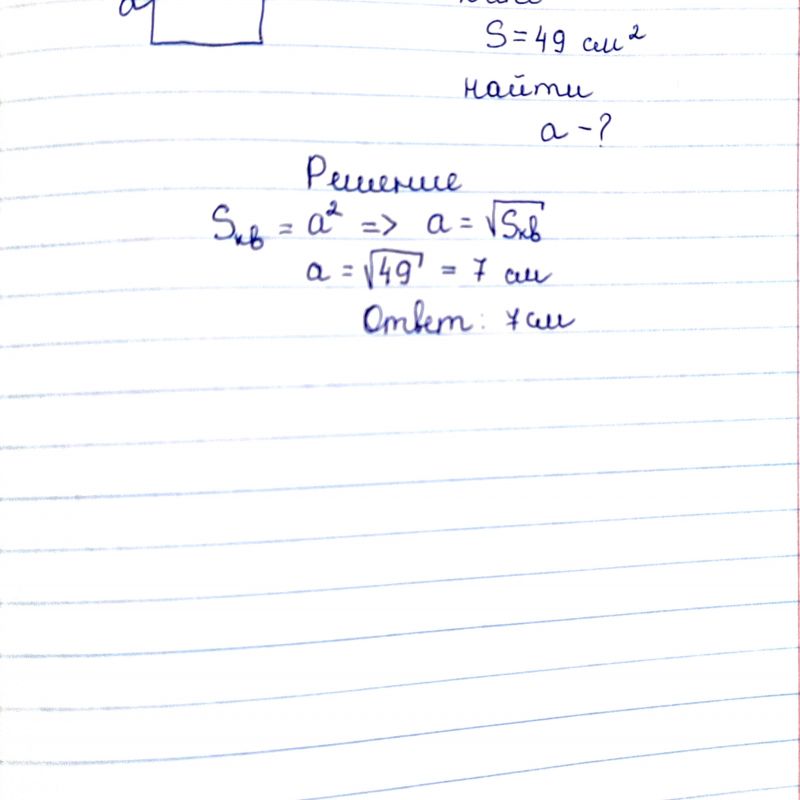 a
S = 49 см²
найти
a - ?
Решение
Sкв = a² => a = √Sкв
a = √49 = 7 см
Ответ: 7 см